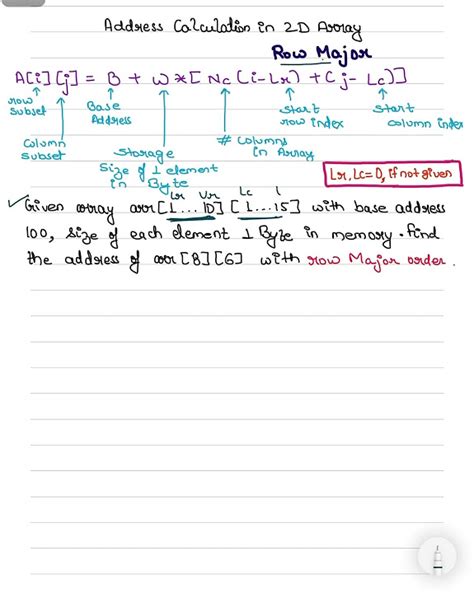 Address Calculation in 2D Array
Row Major
A[i][j] = B + W*[Nc(i-Lr) + (j-Lc)]
row subset
Column subset
Base Address
Storage Size of 1 element in Byte
# Columns in Array
Start row index
Start column index
Lr, Lc=0, if not given
Lr Ur Lc
✓Given array arr[1...10][1...15] with base address
100, size of each element 1 Byte in memory. Find
the address of arr[8][6] with row Major order.